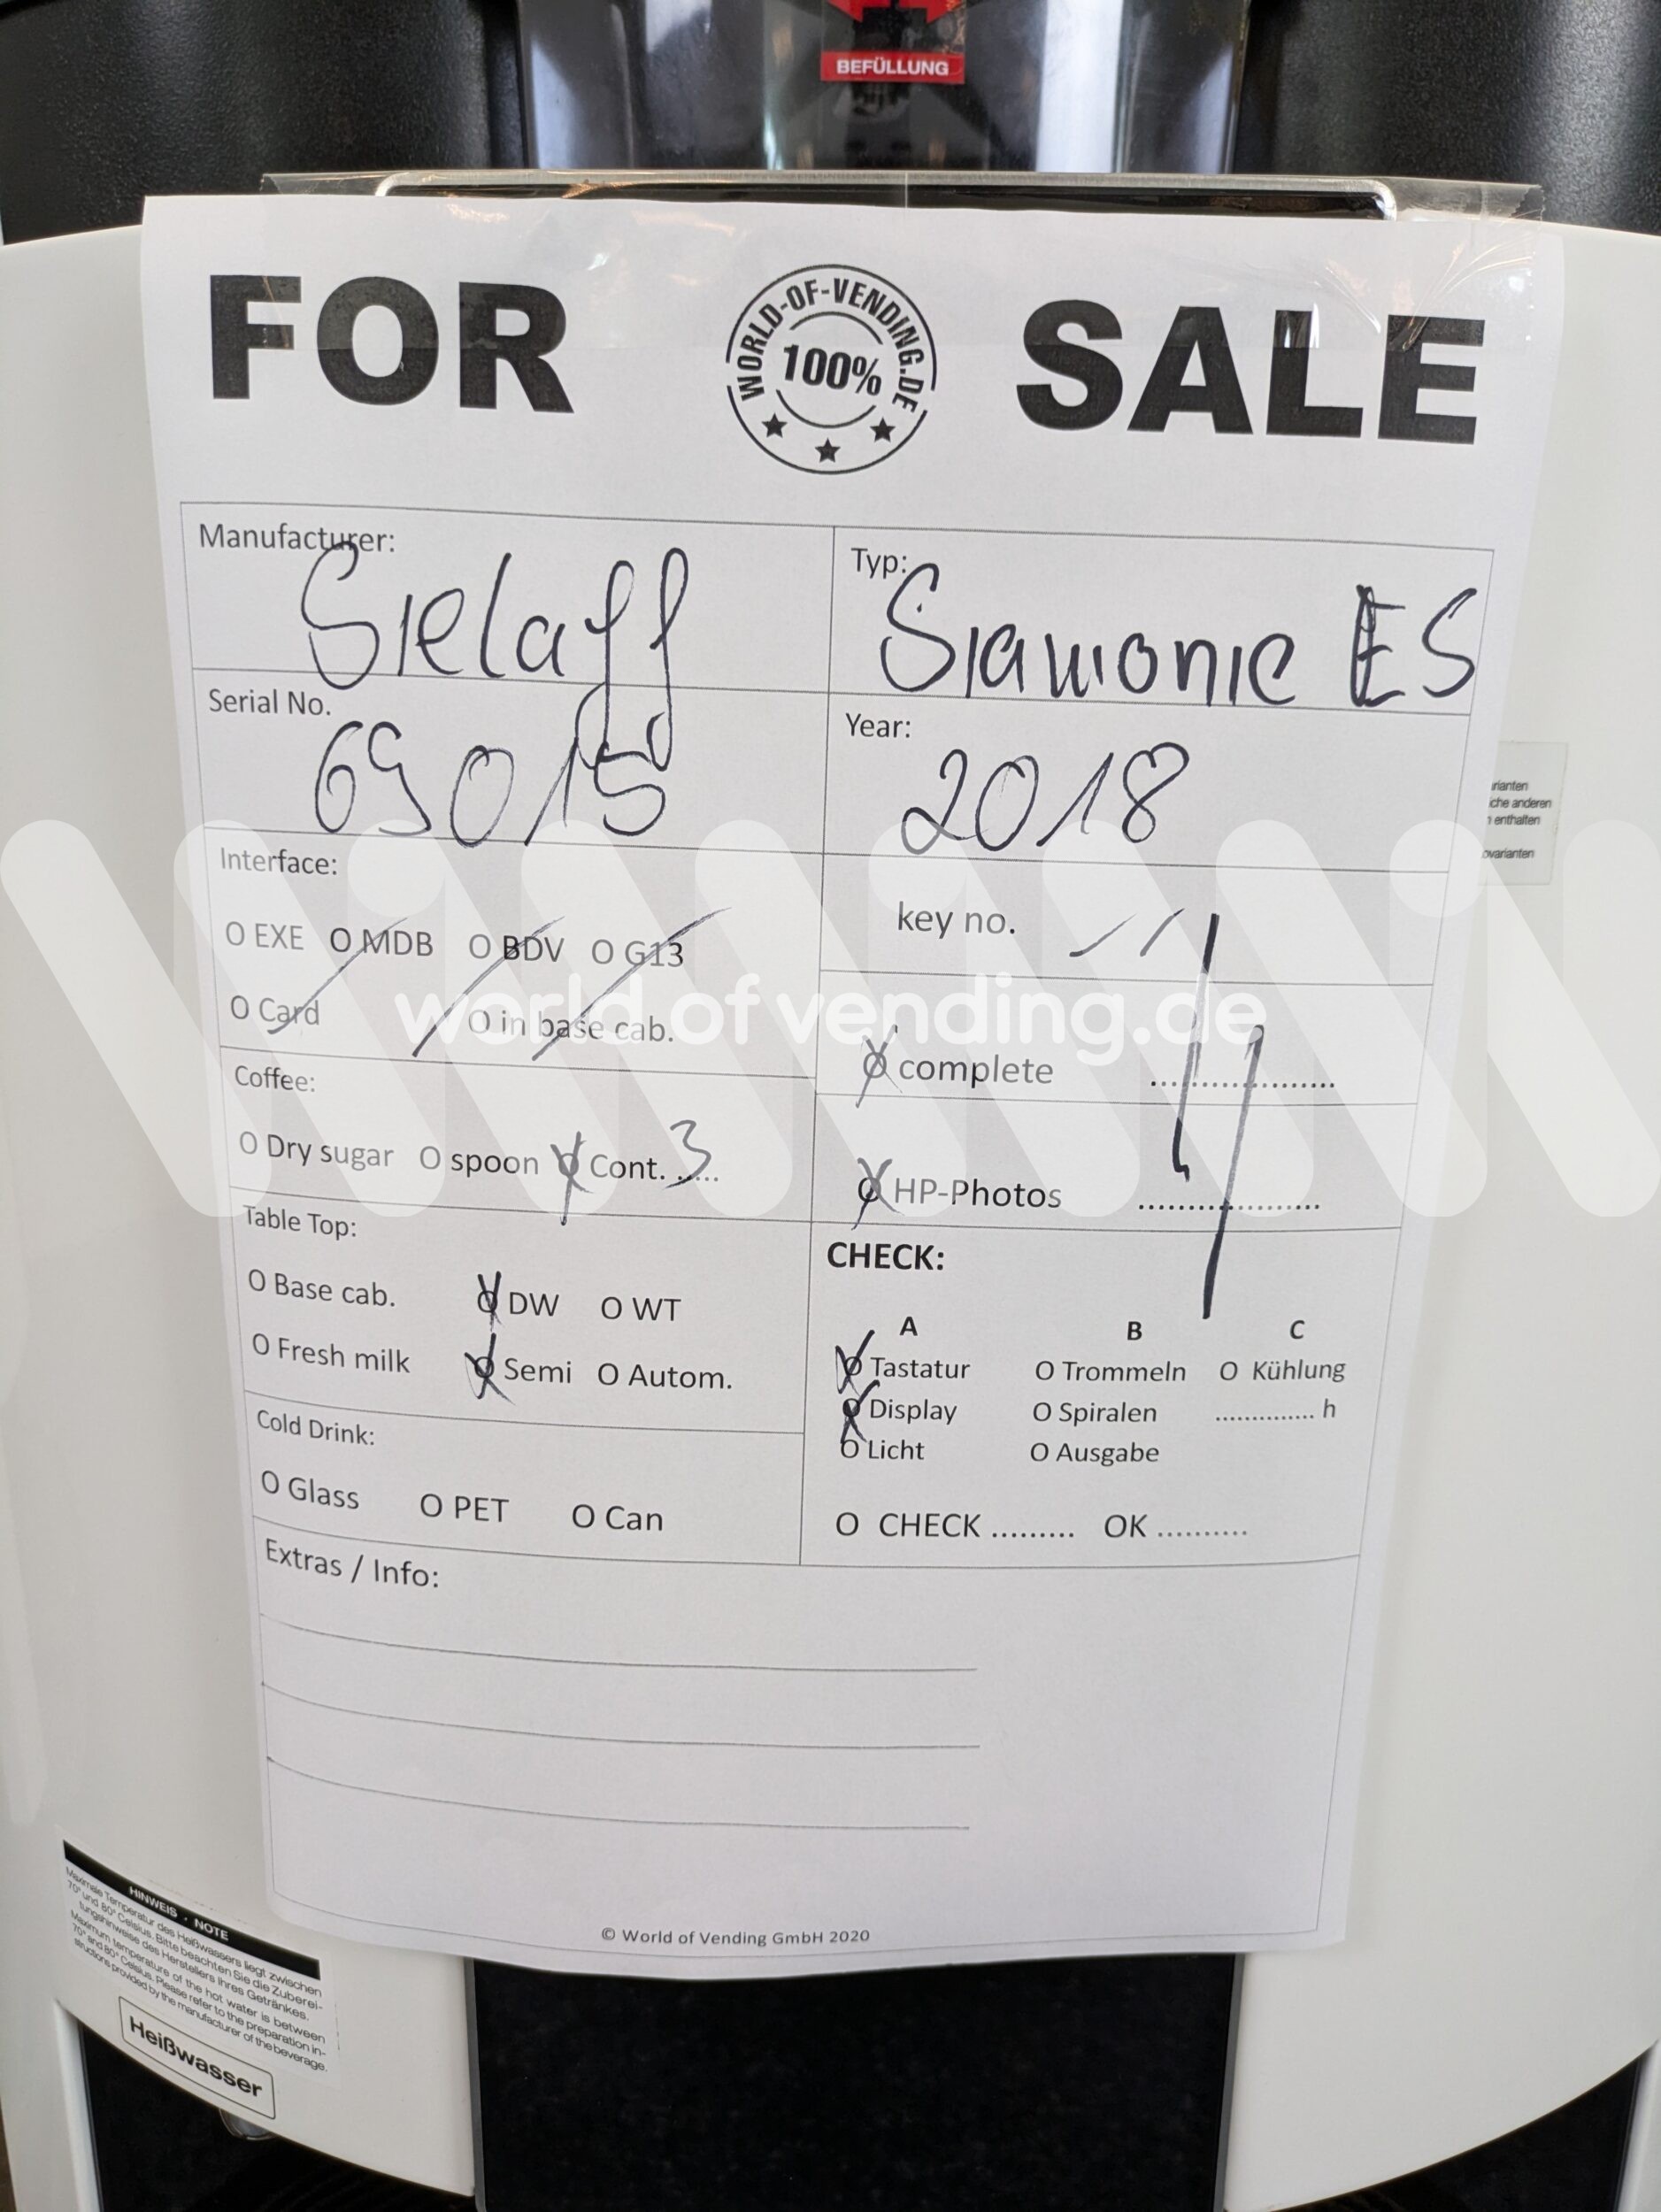 BEFÜLLUNG
FOR SALE
WORLD-OF-VENDING.DE
100%
Manufacturer:
Sielaff
Typ:
Siamonie ES
Serial No.
69015
Year:
2018
Interface:
O EXE O MDB O BDV O G13
O Card O in base cab.
key no.
O complete ....................
Coffee:
O Dry sugar O spoon O Cont. 3
O HP-Photos ....................
Table Top:
O Base cab. O DW O WT
O Fresh milk O Semi O Autom.
CHECK:
A B C
O Tastatur O Trommeln O Kühlung
O Display O Spiralen .............. h
O Licht O Ausgabe
O CHECK ......... OK ..........
Cold Drink:
O Glass O PET O Can
Extras / Info:
© World of Vending GmbH 2020
world of vending.de
che anderen
enthalten
HINWEIS · NOTE
Maximale Temperatur des Heißwassers liegt zwischen
70° und 80° Celsius. Bitte beachten Sie die Zuberei-
tungshinweise des Herstellers Ihres Getränkes.
Maximum temperature of the hot water is between
70° and 80° Celsius. Please refer to the preparation in-
structions provided by the manufacturer of the beverage.
Heißwasser